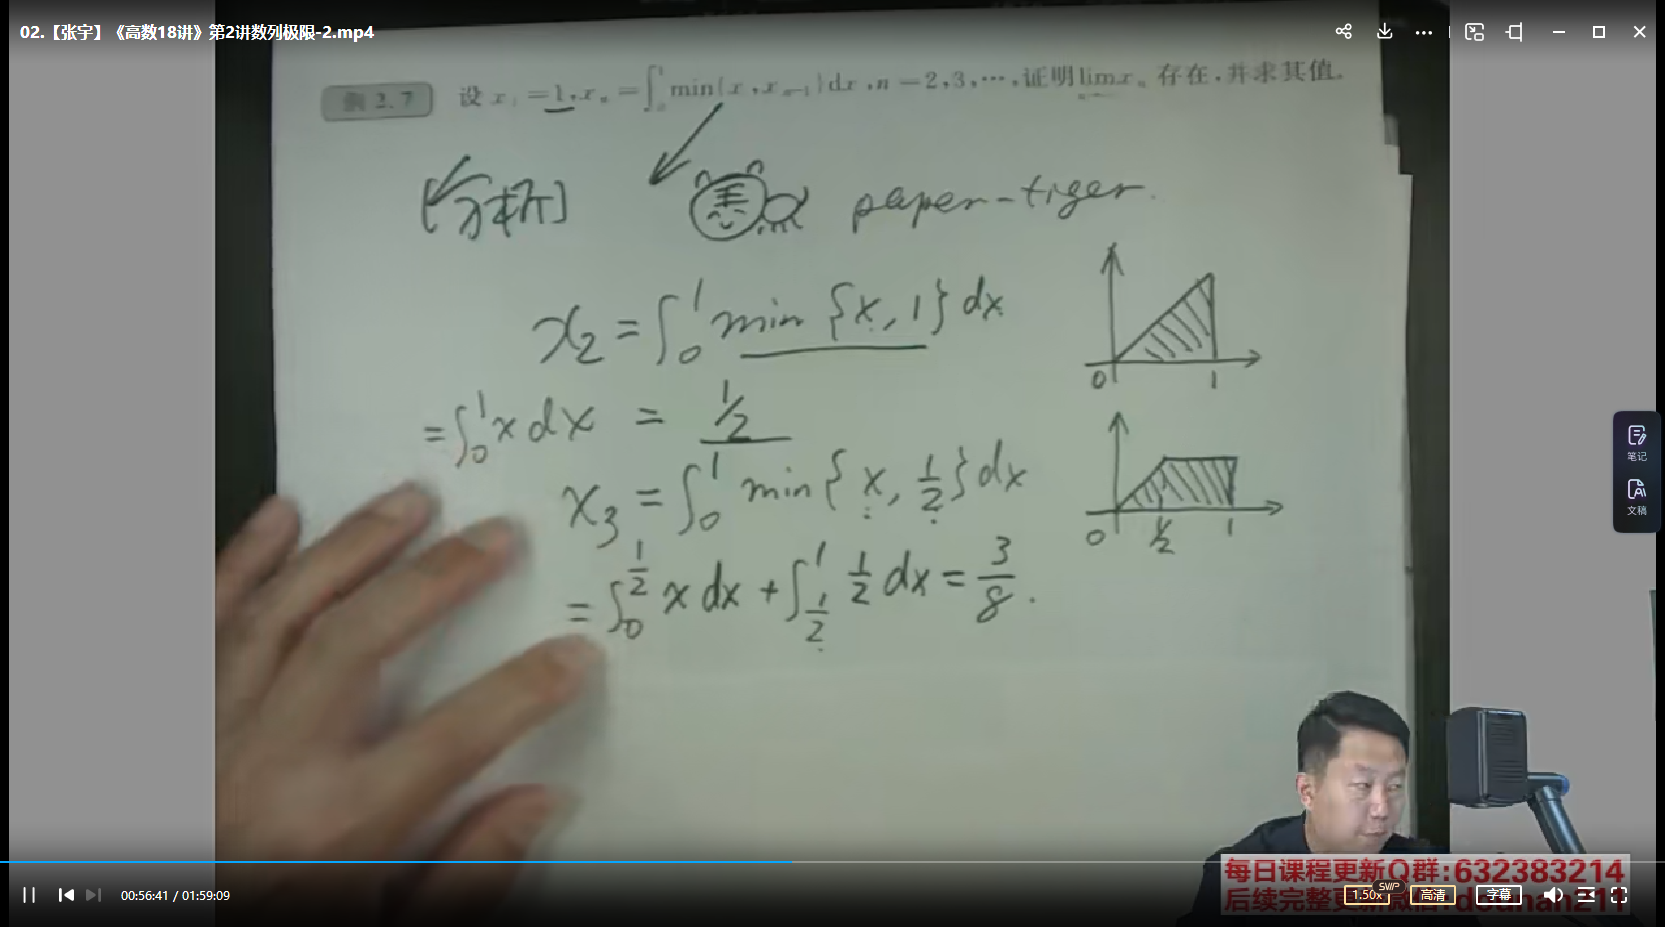 02.【张宇】《高数18讲》第2讲数列极限-2.mp4
例 2.7 设 x₁=1,xₙ=∫₀¹min{x,xₙ₋₁}dx,n=2,3,…,证明lim xₙ 存在,并求其值.
[分析] paper-tiger.
x₂=∫₀¹ min {x, 1} dx
0 1
=∫₀¹ x dx = 1/2
x₃ = ∫₀¹ min{x, 1/2}dx
0 1/2 1
=∫₀^(1/2) x dx + ∫_(1/2)^1 1/2 dx = 3/8.
笔记
文稿
每日课程更新Q群:632383214
00:56:41 / 01:59:09
1.50x
SVIP
高清
字幕